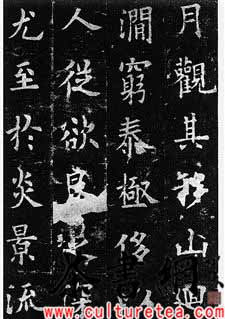 月觀其移山迴
澗窮泰極侈以
人從欲良深
尤至於炎景流
www.culturetea.com